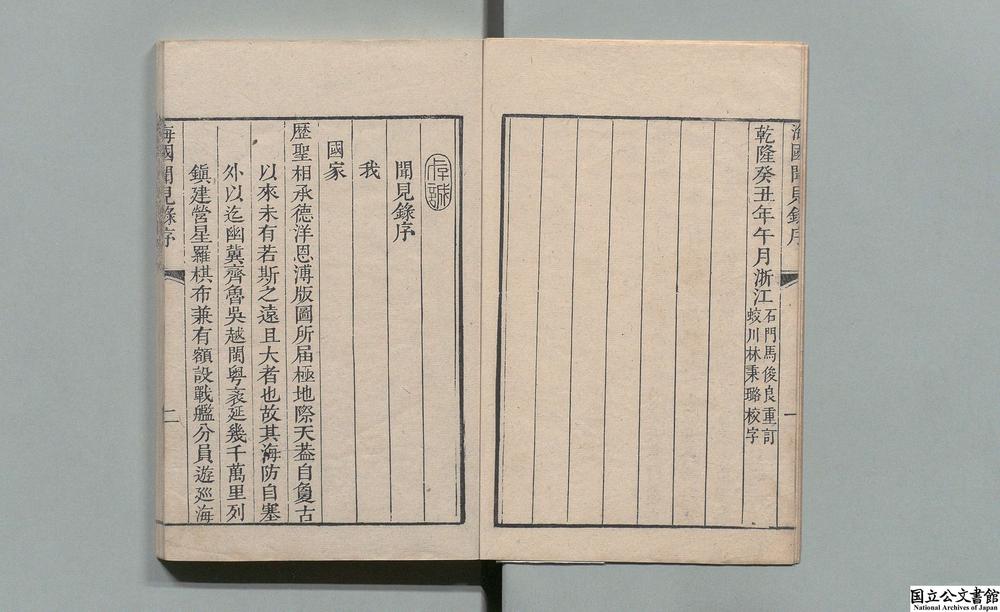 海國聞見錄序
一
乾隆癸丑年午月浙江
石門馬俊良重訂
蛟川林秉璐校字
聞見錄序
我
國家
歷聖相承德洋恩溥版圖所届極地際天葢自夐古
以來未有若斯之遠且大者也故其海防自塞
外以迄幽冀齊魯吳越閩粤袤延幾千萬里列
鎮建營星羅棋布兼有額設戰艦分員遊廵海
海國聞見錄序
二
国立公文書館
National Archives of Japan